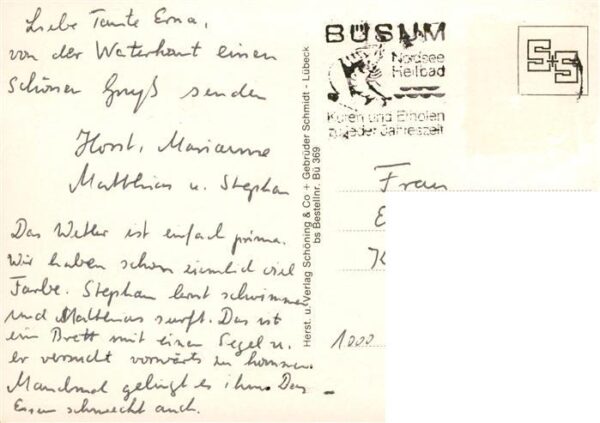 Liebe Tante Erna,
von der Waterkant einen
schönen Gruß senden
Horst, Marianne
Matthias u. Stephan
Das Wetter ist einfach prima.
Wir haben schon ziemlich viel
Farbe. Stephan lernt schwimmen
und Matthias surft. Das ist
ein Brett mit einem Segel u.
er versucht vorwärts zu kommen.
Manchmal gelingt es ihm. Das
Essen schmeckt auch.
Herst. u. Verlag Schöning & Co + Gebrüder Schmidt - Lübeck
bs Bestellnr. Bü 369
BÜSUM
Nordsee
Heilbad
Kuren und Erholen
zu jeder Jahreszeit
S+S
Frau
E
K
1000